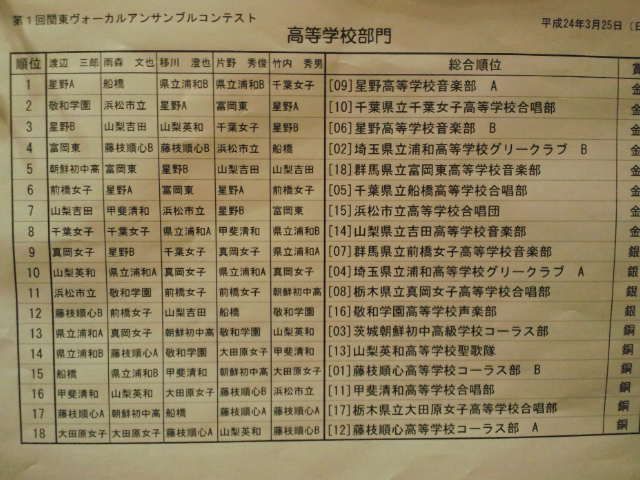 第1回関東ヴォーカルアンサンブルコンテスト
平成24年3月25日
高等学校部門
順位 渡辺 三郎 雨森 文也 移川 澄也 片野 秀俊 竹内 秀男 総合順位 賞
1 星野A 船橋 県立浦和B 県立浦和B 千葉女子 [09]星野高等学校音楽部 A 金
2 敬和学園 浜松市立 星野A 富岡東 星野A [10]千葉県立千葉女子高等学校合唱部 金
3 星野B 山梨吉田 山梨英和 千葉女子 星野B [06]星野高等学校音楽部 B 金
4 富岡東 藤枝順心B 藤枝順心B 浜松市立 船橋 [02]埼玉県立浦和高等学校グリークラブ B 金
5 朝鮮初中高 富岡東 星野B 山梨吉田 山梨吉田 [18]群馬県立富岡東高等学校音楽部 金
6 前橋女子 星野A 富岡東 星野A 前橋女子 [05]千葉県立船橋高等学校合唱部 金
7 山梨吉田 甲斐清和 浜松市立 星野B 富岡東 [15]浜松市立高等学校合唱団 金
8 千葉女子 千葉女子 県立浦和A 甲斐清和 県立浦和B [14]山梨県立吉田高等学校音楽部 金
9 真岡女子 星野B 千葉女子 真岡女子 県立浦和A [07]群馬県立前橋女子高等学校音楽部 銀
10 山梨英和 県立浦和A 真岡女子 県立浦和A 真岡女子 [04]埼玉県立浦和高等学校グリークラブ A 銀
11 浜松市立 敬和学園 前橋女子 前橋女子 朝鮮初中高 [08]栃木県立真岡女子高等学校合唱部 銀
12 藤枝順心B 前橋女子 山梨吉田 船橋 敬和学園 [16]敬和学園高等学校声楽部 銀
13 県立浦和A 真岡女子 朝鮮初中高 敬和学園 山梨英和 [03]茨城朝鮮初中高級学校コーラス部 銅
14 県立浦和B 藤枝順心A 敬和学園 大田原女子 甲斐清和 [13]山梨英和高等学校聖歌隊 銅
15 船橋 県立浦和B 甲斐清和 朝鮮初中高 藤枝順心A [01]藤枝順心高等学校コーラス部 B 銅
16 甲斐清和 山梨英和 大田原女子 藤枝順心B 浜松市立 [11]甲斐清和高等学校合唱部 銅
17 藤枝順心A 朝鮮初中高 船橋 藤枝順心A 大田原女子 [17]栃木県立大田原女子高等学校合唱部 銅
18 大田原女子 大田原女子 藤枝順心A 山梨英和 藤枝順心B [12]藤枝順心高等学校コーラス部 A 銅